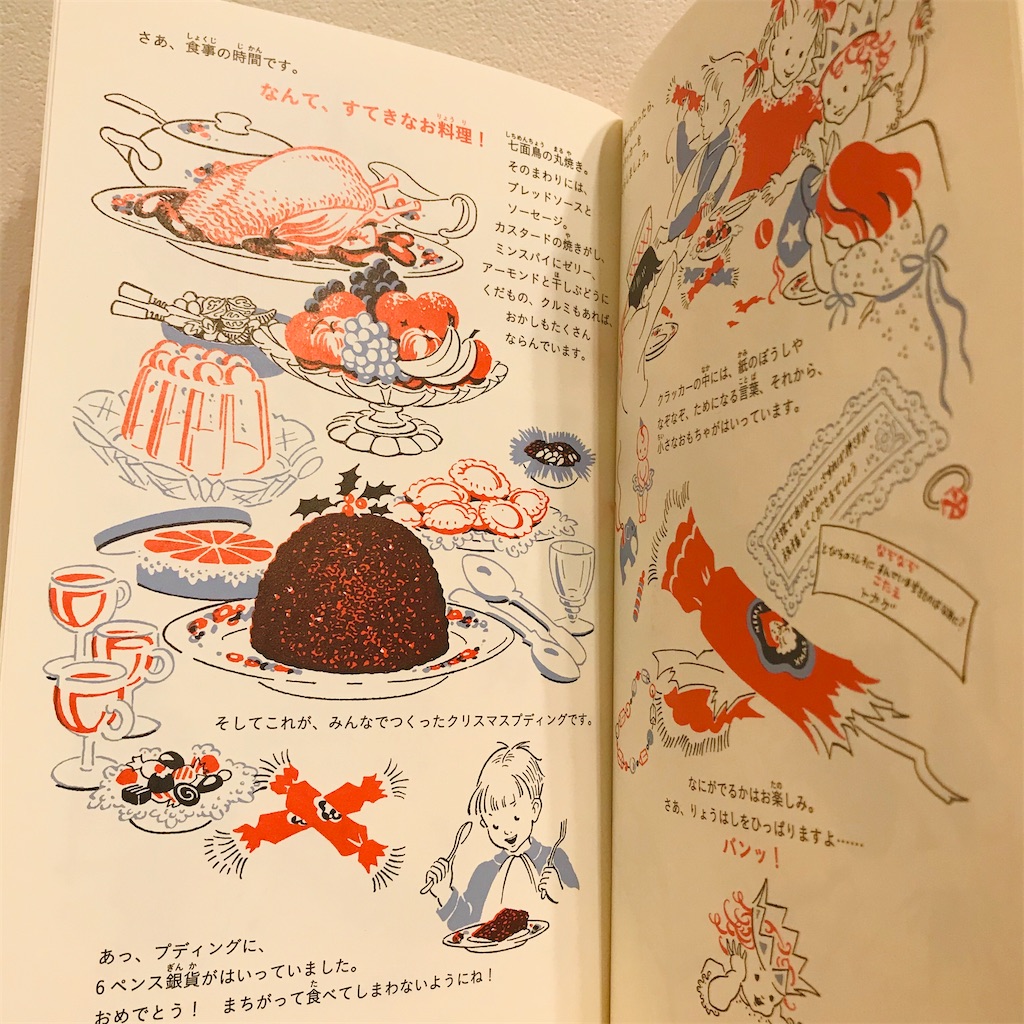 さあ、食事の時間です。
なんて、すてきなお料理！
七面鳥の丸焼き。
そのまわりには、
ブレッドソースと
ソーセージ。
カスタードの焼きがし、
ミンスパイにゼリー、
アーモンドと干しぶどうに
くだもの、クルミもあれば、
おかしもたくさん
ならんでいます。
そしてこれが、みんなでつくったクリスマスプディングです。
あっ、プディングに、
6ペンス銀貨がはいっていました。
おめでとう！　まちがって食べてしまわないようにね！
クラッカーの中には、紙のぼうしや
なぞなぞ、ためになる言葉、それから、
小さなおもちゃがはいっています。
なぞなぞ
こたえ
トカゲ
なにがでるかはお楽しみ。
さあ、りょうはしをひっぱりますよ……
パンッ！